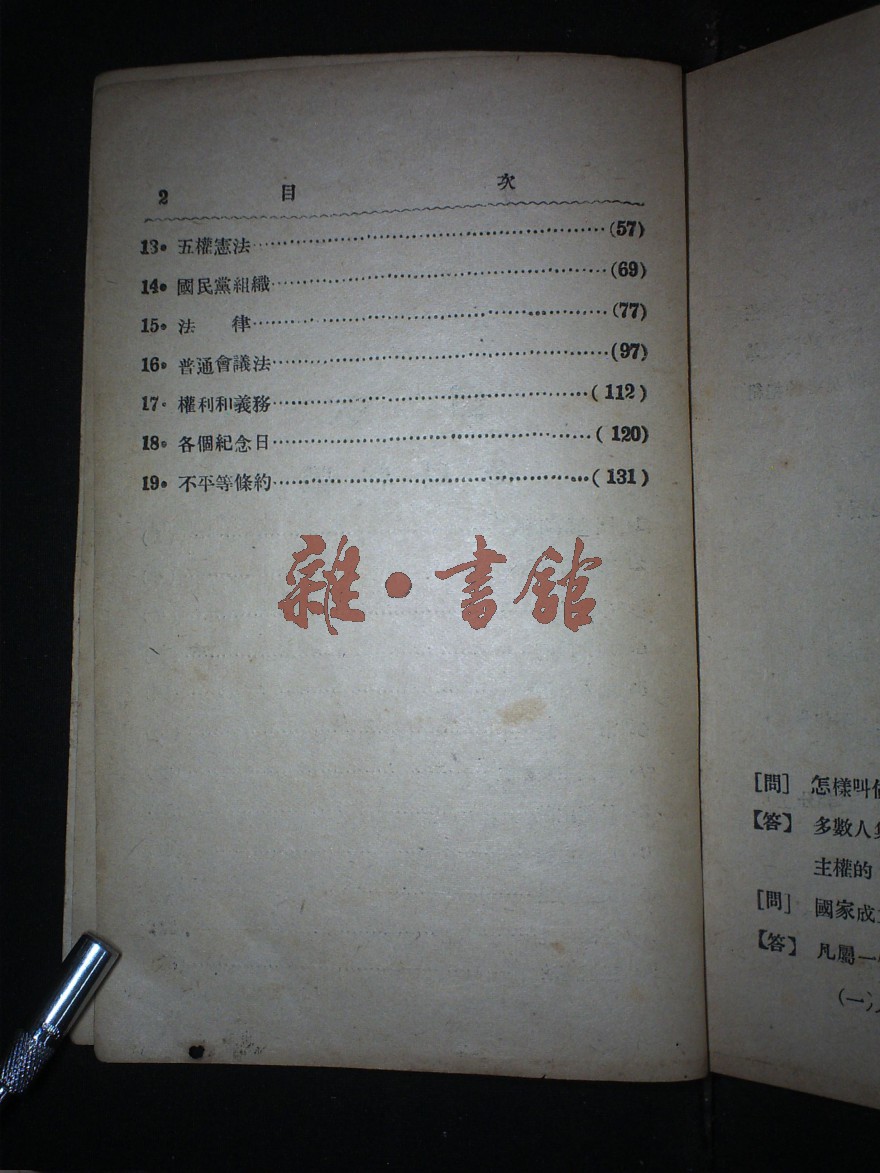 2 目 次
13. 五權憲法 (57)
14. 國民黨組織 (69)
15. 法 律 (77)
16. 普通會議法 (97)
17. 權利和義務 (112)
18. 各個紀念日 (120)
19. 不平等條約 (131)
雜·書館
[問] 怎樣叫
【答】 多數人
主權的
[問] 國家成
【答】 凡屬一
(一)